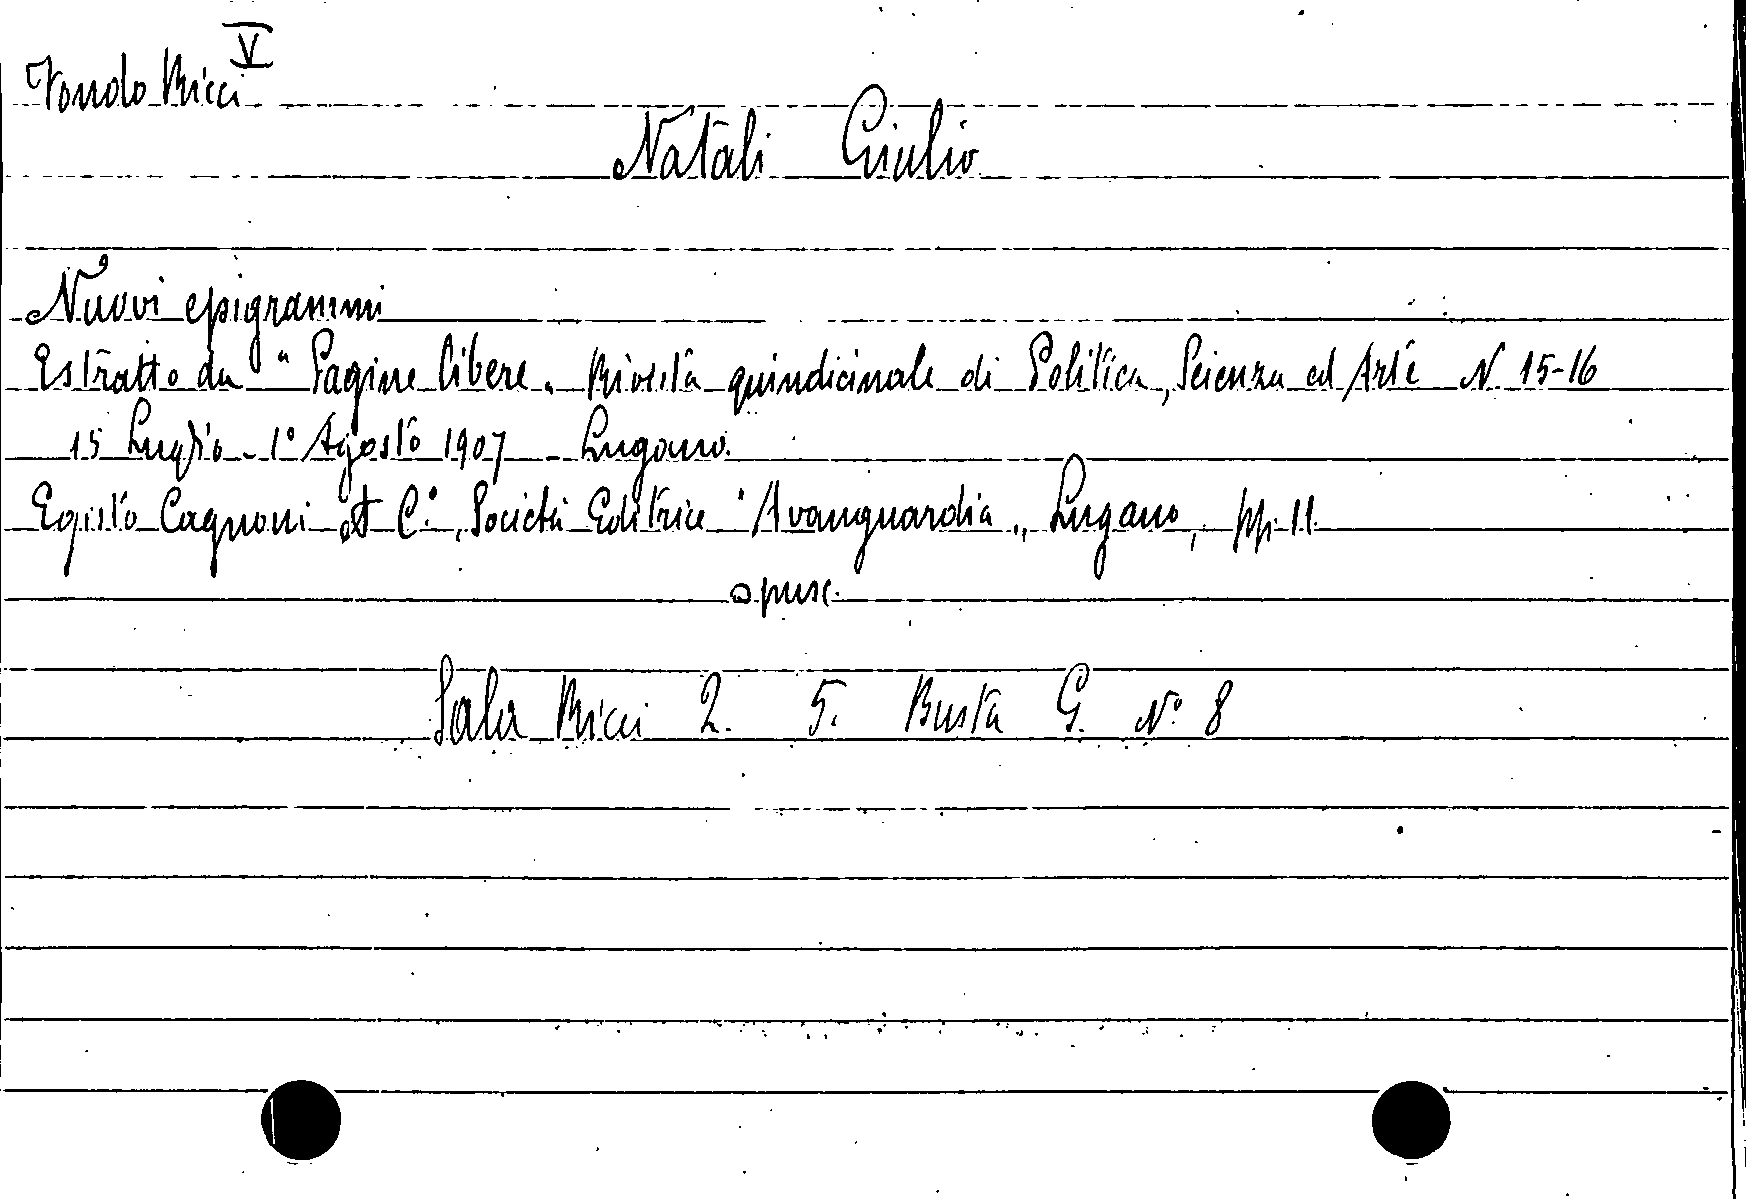 Fondo Ricci V
Natali Giulio
Nuovi epigrammi
Estratto da "Pagine libere. Rivista quindicinale di Politica, Scienza ed Arte N. 15-16
15 Luglio - 1° Agosto 1907 - Lugano.
Egisto Cagnoni et C.°, Società Editrice "Avanguardia", Lugano, pp. 11.
opusc.
Sala Ricci 2. 5. Busta G. N° 8